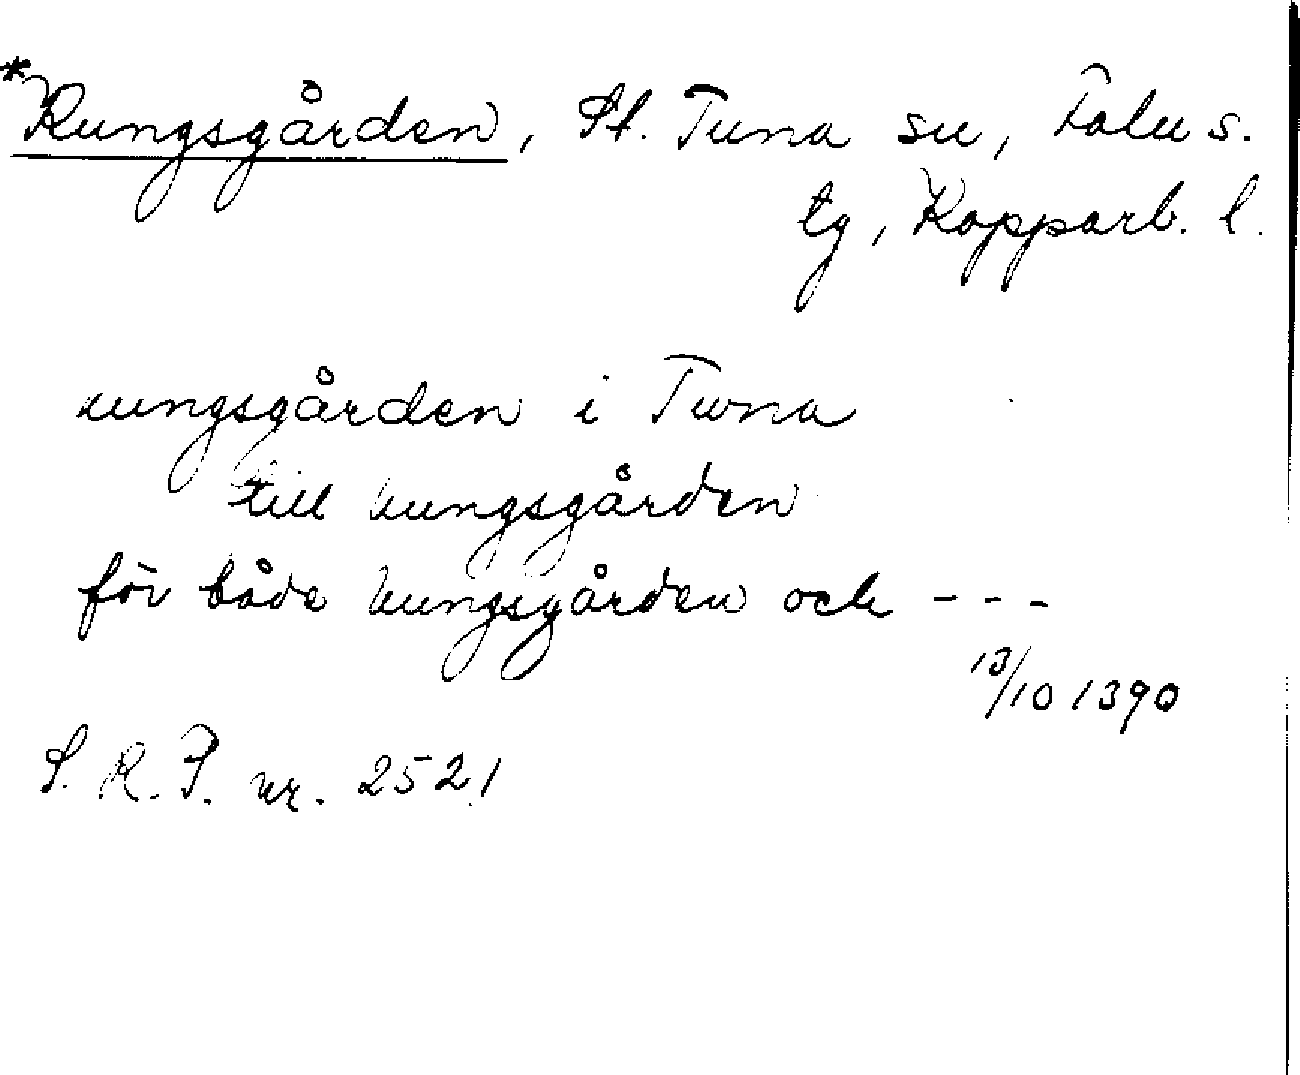 *Kungsgården, St. Tuna sn, Falu s.
tg, Kopparb. l.
kungsgården i Tuna
till kungsgården
för både kungsgården och - - -
13/10 1390
S. R. P. nr. 2521